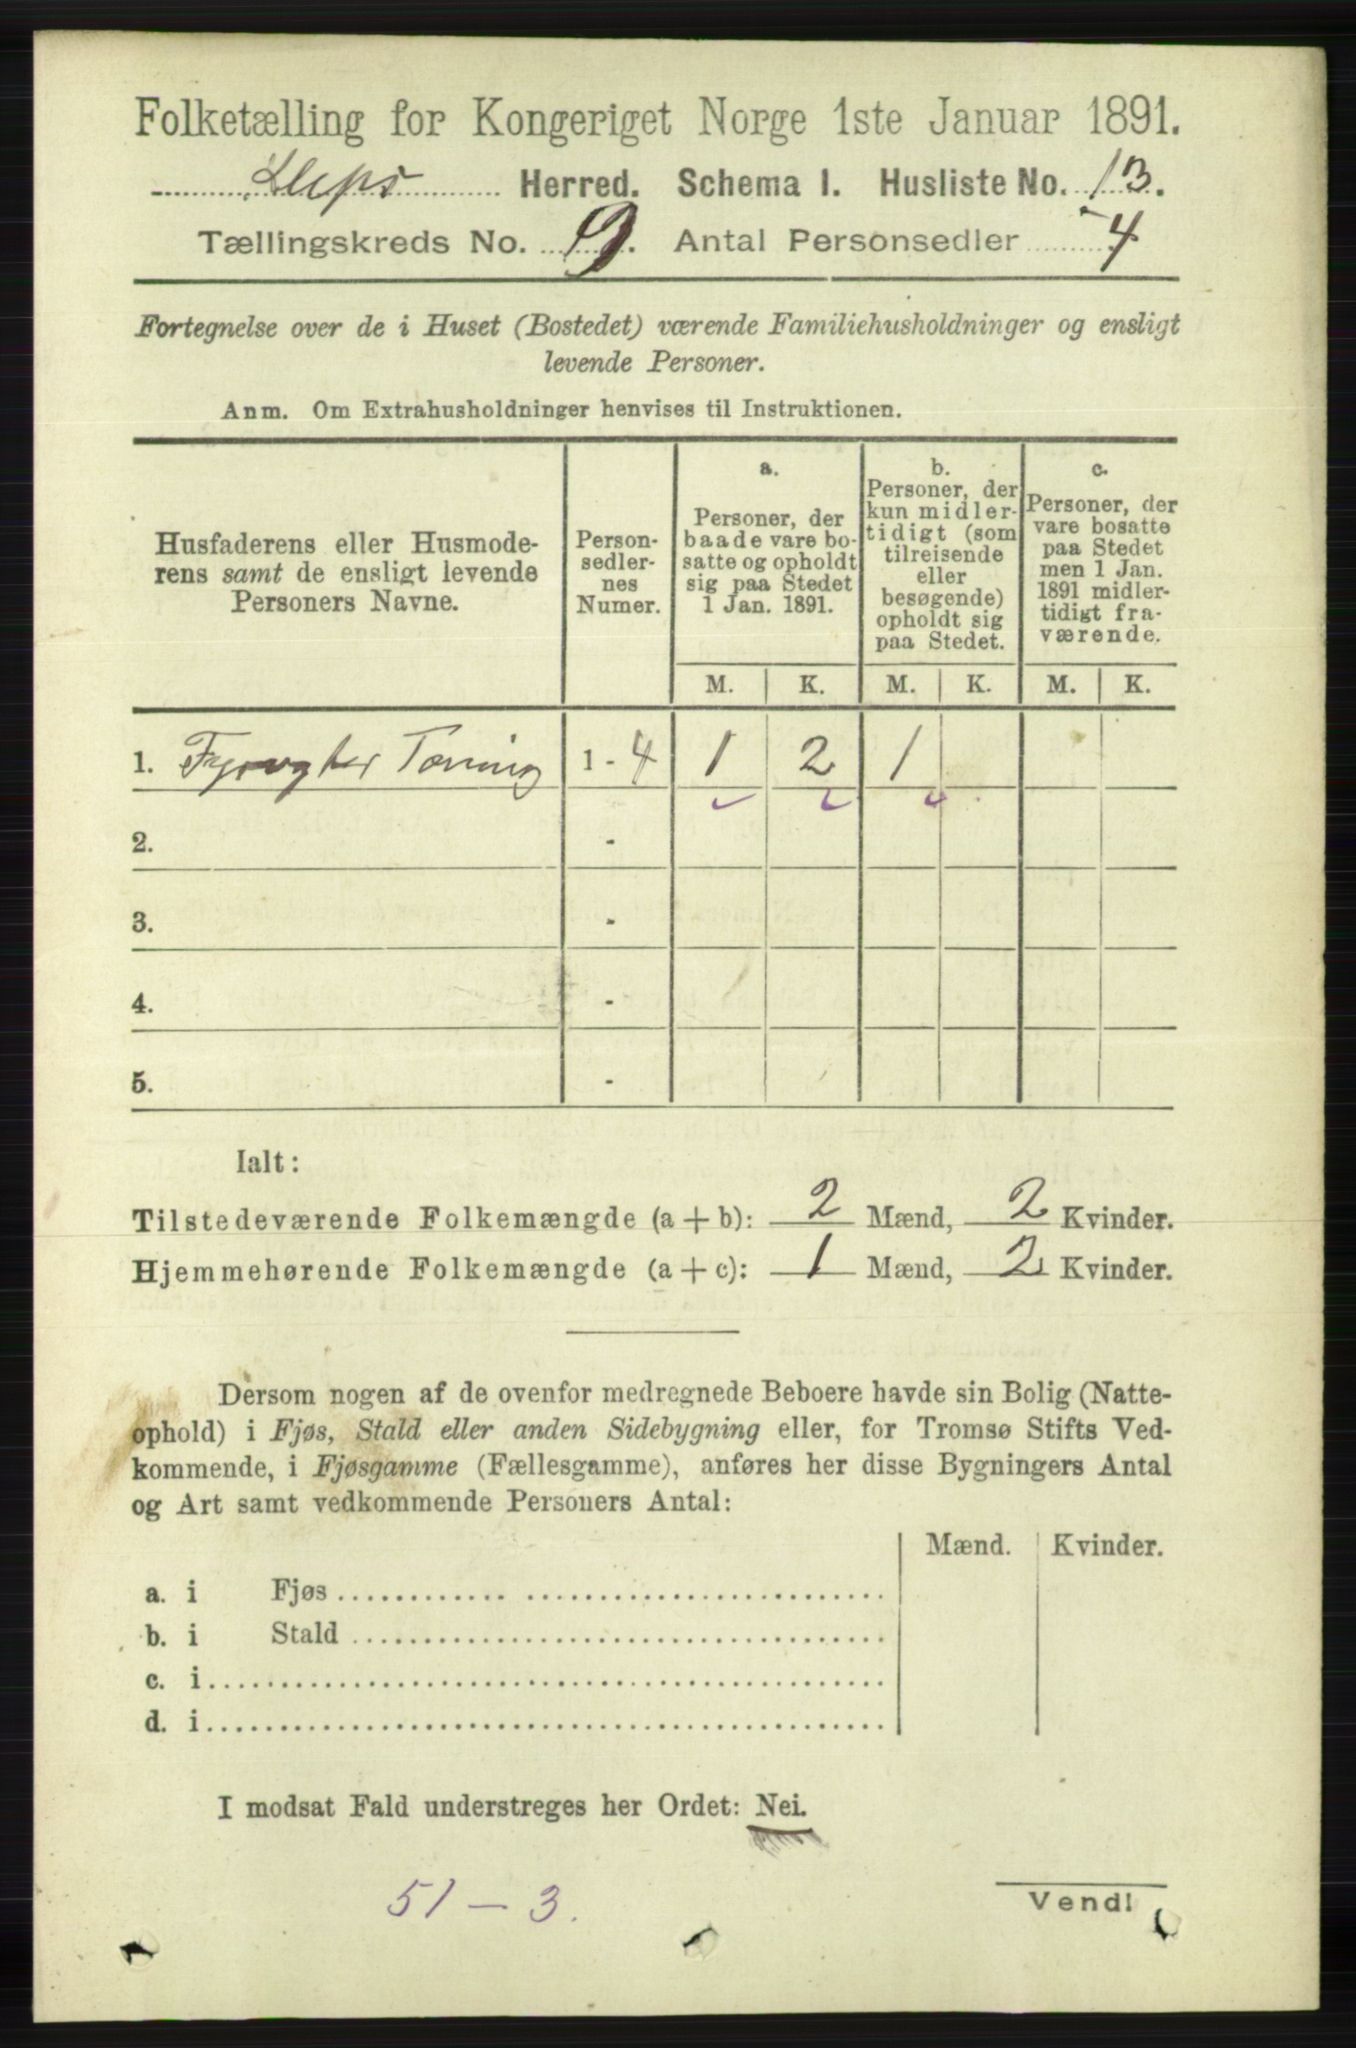 Folketælling for Kongeriget Norge 1ste Januar 1891.
Herred. Schema I. Husliste No. 13.
Tællingskreds No. 9. Antal Personsedler 4
Fortegnelse over de i Huset (Bostedet) værende Familiehusholdninger og ensligt
levende Personer.
Anm. Om Extrahusholdninger henvises til Instruktionen.
Husfaderens eller Husmode-
rens samt de ensligt levende
Personers Navne.
Person-
sedler-
nes
Numer.
a.
Personer, der
baade vare bo-
satte og opholdt
sig paa Stedet
1 Jan. 1891.
b.
Personer, der
kun midler-
tidigt (som
tilreisende
eller
besøgende)
opholdt sig
paa Stedet.
c.
Personer, der
vare bosatte
paa Stedet
men 1 Jan.
1891 midler-
tidigt fra-
værende.
M. K. M. K. M. K.
1. Fyrvogter 1 - 4 1 2 1
2. -
3. -
4. -
5. -
Ialt:
Tilstedeværende Folkemængde (a + b): 2 Mænd, 2 Kvinder.
Hjemmehørende Folkemængde (a + c): 1 Mænd, 2 Kvinder.
Dersom nogen af de ovenfor medregnede Beboere havde sin Bolig (Natte-
ophold) i Fjøs, Stald eller anden Sidebygning eller, for Tromsø Stifts Ved-
kommende, i Fjøsgamme (Fællesgamme), anføres her disse Bygningers Antal
og Art samt vedkommende Personers Antal:
Mænd. Kvinder.
a. i Fjøs
b. i Stald
c. i
d. i
I modsat Fald understreges her Ordet: Nei.
51 - 3.
Vend!